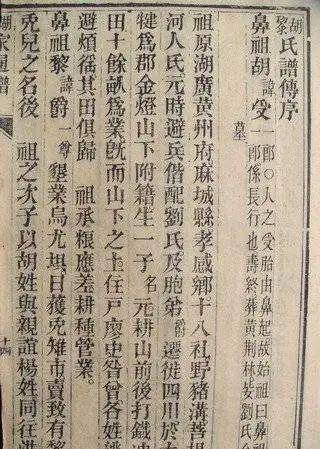 胡黎氏譜傳序
鼻祖胡諱受一郎○人之受胎由鼻起故始祖曰鼻祖
一郎係長行也壽終葬黃荆林妣劉氏
墓
祖原湖廣黃州府麻城縣孝感鄉十八社野豬溝菩提
河人氏元時避兵偕配劉氏及胞弟爵遷徙四川於
犍爲郡金燈山下附籍生一子名元耕山前後打鐵冲
田十餘畝爲業旣而山下之土住戶廖史曾各姓
避煩徭其田俱歸 祖承粮應差耕種管業
鼻祖黎諱爵一尊墾業烏尤垻日獲兎雉市賣致有黎
兎兒之名後 祖之次子以胡姓與親誼楊姓同往洪
十四